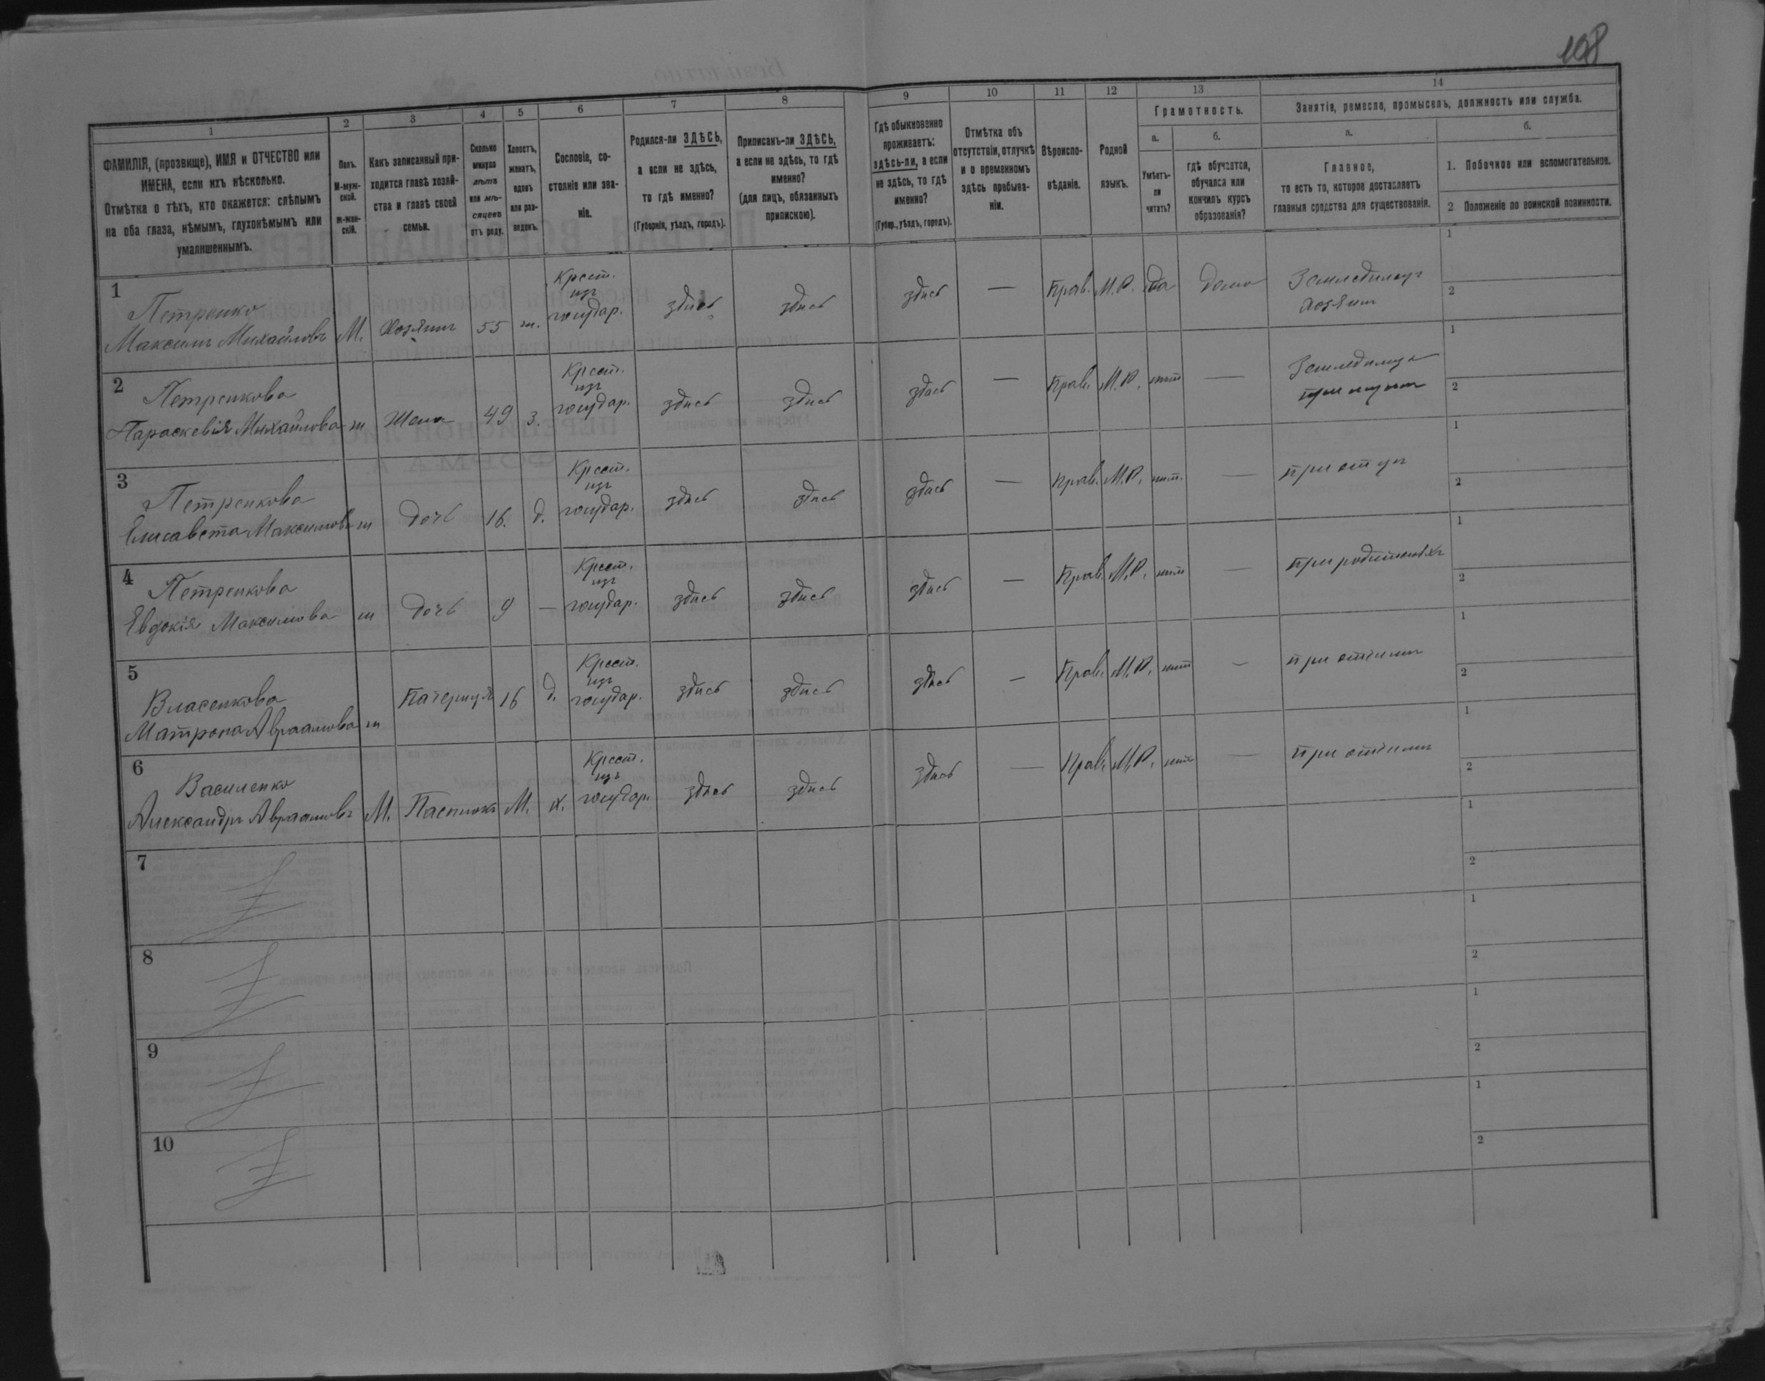 108
1
2
3
4
5
6
7
8
9
10
11
12
13
14
ФАМИЛІЯ, (прозвище), ИМЯ и ОТЧЕСТВО или
ИМЕНА, если ихъ нѣсколько.
Отмѣтка о тѣхъ, кто окажется: слѣпымъ
на оба глаза, нѣмымъ, глухонѣмымъ или
умалишеннымъ.
Полъ.
М-муж-
ской.
ж-жен-
скій.
Какъ записанный при-
ходится главѣ хозяй-
ства и главѣ своей
семьи.
Сколько
минуло
лѣтъ
или мѣ-
сяцевъ
отъ роду.
Холостъ,
женатъ,
вдовъ
или раз-
веденъ.
Сословіе, со-
стояніе или зва-
ніе.
Родился-ли ЗДѢСЬ,
а если не здѣсь,
то гдѣ именно?
(Губернія, уѣздъ, городъ).
Приписанъ-ли ЗДѢСЬ,
а если не здѣсь, то гдѣ
именно?
(для лицъ, обязанныхъ
припискою).
Гдѣ обыкновенно
проживаетъ:
здѣсь-ли, а если
не здѣсь, то гдѣ
именно?
(Губер., уѣздъ, городъ).
Отмѣтка объ
отсутствіи, отлучкѣ
и о временномъ
здѣсь пребыва-
ніи.
Вѣроиспо-
вѣданіе.
Родной
языкъ.
Грамотность.
а.
Умѣетъ-
ли
читать?
б.
гдѣ обучается,
обучался или
кончилъ курсъ
образованія?
Занятіе, ремесло, промыселъ, должность или служба.
а.
Главное,
то есть то, которое доставляетъ
главныя средства для существованія.
б.
1. Побочное или вспомогательное.
2 Положеніе по воинской повинности.
1
Петренко
Максимъ Михайловъ М. Хозяинъ 55 ж. Крест. изъ государ. здѣсь здѣсь здѣсь — Прав. М.Р. да дома Земледѣлецъ хозяинъ
1
2
2
Петренкова
Параскевія Михайлова ж Жена 49 з. Крест. изъ государ. здѣсь здѣсь здѣсь — Прав. М.Р. нѣт — Земледѣлица при мужѣ
1
2
3
Петренкова
Елисавета Максимова ж Дочь 16. д. Крест. изъ государ. здѣсь здѣсь здѣсь — Прав. М.Р. нѣт. — при отцѣ
1
2
4
Петренкова
Евдокія Максимова ж Дочь 9 — Крест. изъ государ. здѣсь здѣсь здѣсь — Прав. М.Р. нѣт — при родителяхъ
1
2
5
Власенкова
Матрона Авраамова ж Пачерица 16 д. Крест. изъ государ. здѣсь здѣсь здѣсь — Прав. М.Р. нѣт — при отчимѣ
1
2
6
Александръ Авраамовъ М. Пасынокъ х. Крест. изъ государ. здѣсь здѣсь здѣсь — Прав. М.Р. нѣт — при отчимѣ
1
2
7
1
2
8
1
2
9
1
2
10
1
2